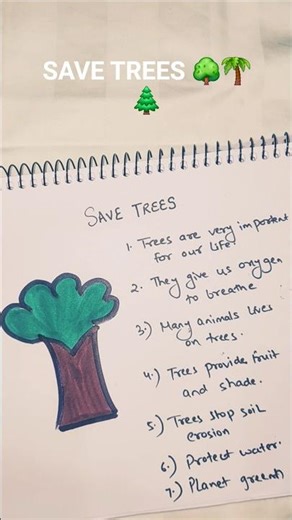 SAVE TREES 🌳🌴
🌲
SAVE TREES
1. Trees are very important
for our life
2. They give us oxygen
to breathe
3.) Many animals lives
on trees.
4.) Trees provide fruit
and shade.
5.) Trees stop soil
erosion
6.) Protect water.
7.) Planet